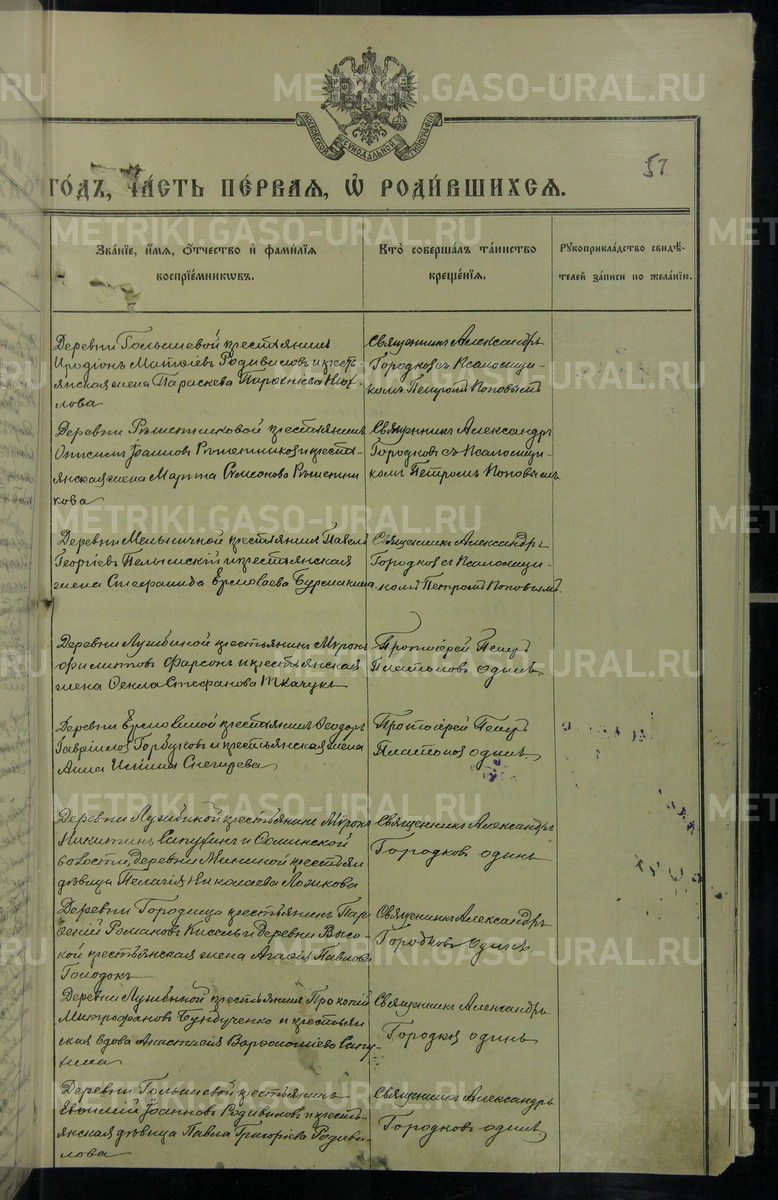 METRIKI.GASO-URAL.RU
МОСКОВСКОЙ СѴНОДАЛЬНОЙ ТИПОГРАФІИ
57
ГОДЪ, ЧА́СТЬ ПЕ́РВАЯ, Ѡ РОДИ́ВШИХСЯ.
Зва́ніе, и́мя, о́тчество и҆ фами́лія
воспріе́мниковъ.
Кто̀ соверша́лъ та́инство
креще́нія.
Рукоприкла́дство свидѣ́-
телей за́писи по жела́нію.
Деревни Голышевой крестьянинъ
Иродіонъ Родивиловъ и кресть-
янская жена Параскева
лова
Священникъ Александръ
Городковъ съ Псаломщи-
комъ Петромъ Поповымъ
Деревни Рѣшетниковой крестьянинъ
Іоанновъ Рѣшетниковъ и кресть-
янская жена Марѳа Симонова Рѣшетни
кова
Священникъ Александръ
Городковъ съ Псаломщи-
комъ Петромъ Поповымъ
Деревни Мельничной крестьянинъ Павелъ
Георгіевъ и крестьянская
жена Стефанида Ермолаева Бурмакина
Священникъ Александръ
Городковъ съ Псаломщи-
комъ Петромъ Поповымъ.
Деревни Лумбиной крестьянинъ Мѵронъ
Филипповъ и крестьянская
жена Ѳекла Стефанова Ткачукъ
Протоіерей Петръ
Платоновъ одинъ
Деревни Ермолиной крестьянинъ Ѳеодоръ
Гавріиловъ Горбуновъ и крестьянская жена
Анна Снегирева
Протоіерей Петръ
Платоновъ одинъ.
Деревни Лумбиной крестьянинъ Мѵронъ
Никитинъ и
волости, деревни Мининой крестьян
дѣвица Пелагія Николаева Ложкова
Священникъ Александръ
Городковъ одинъ
Деревни Городища крестьянинъ Пар-
ѳеній Романовъ Кисель и деревни Высо-
кой крестьянская жена Агафія Павлова
Голодокъ
Священникъ Александръ
Городковъ одинъ
Деревни Лумбиной крестьянинъ Прокопій
Митрофановъ Бундученко и крестьян
ская вдова Анастасія Варѳоломеева
Священникъ Александръ
Городковъ одинъ
Деревни Голышевой крестьянинъ
Іоанновъ Родивиловъ и кресть-
янская дѣвица Павла Григоріева Родиви-
лова
Священникъ Александръ
Городковъ одинъ